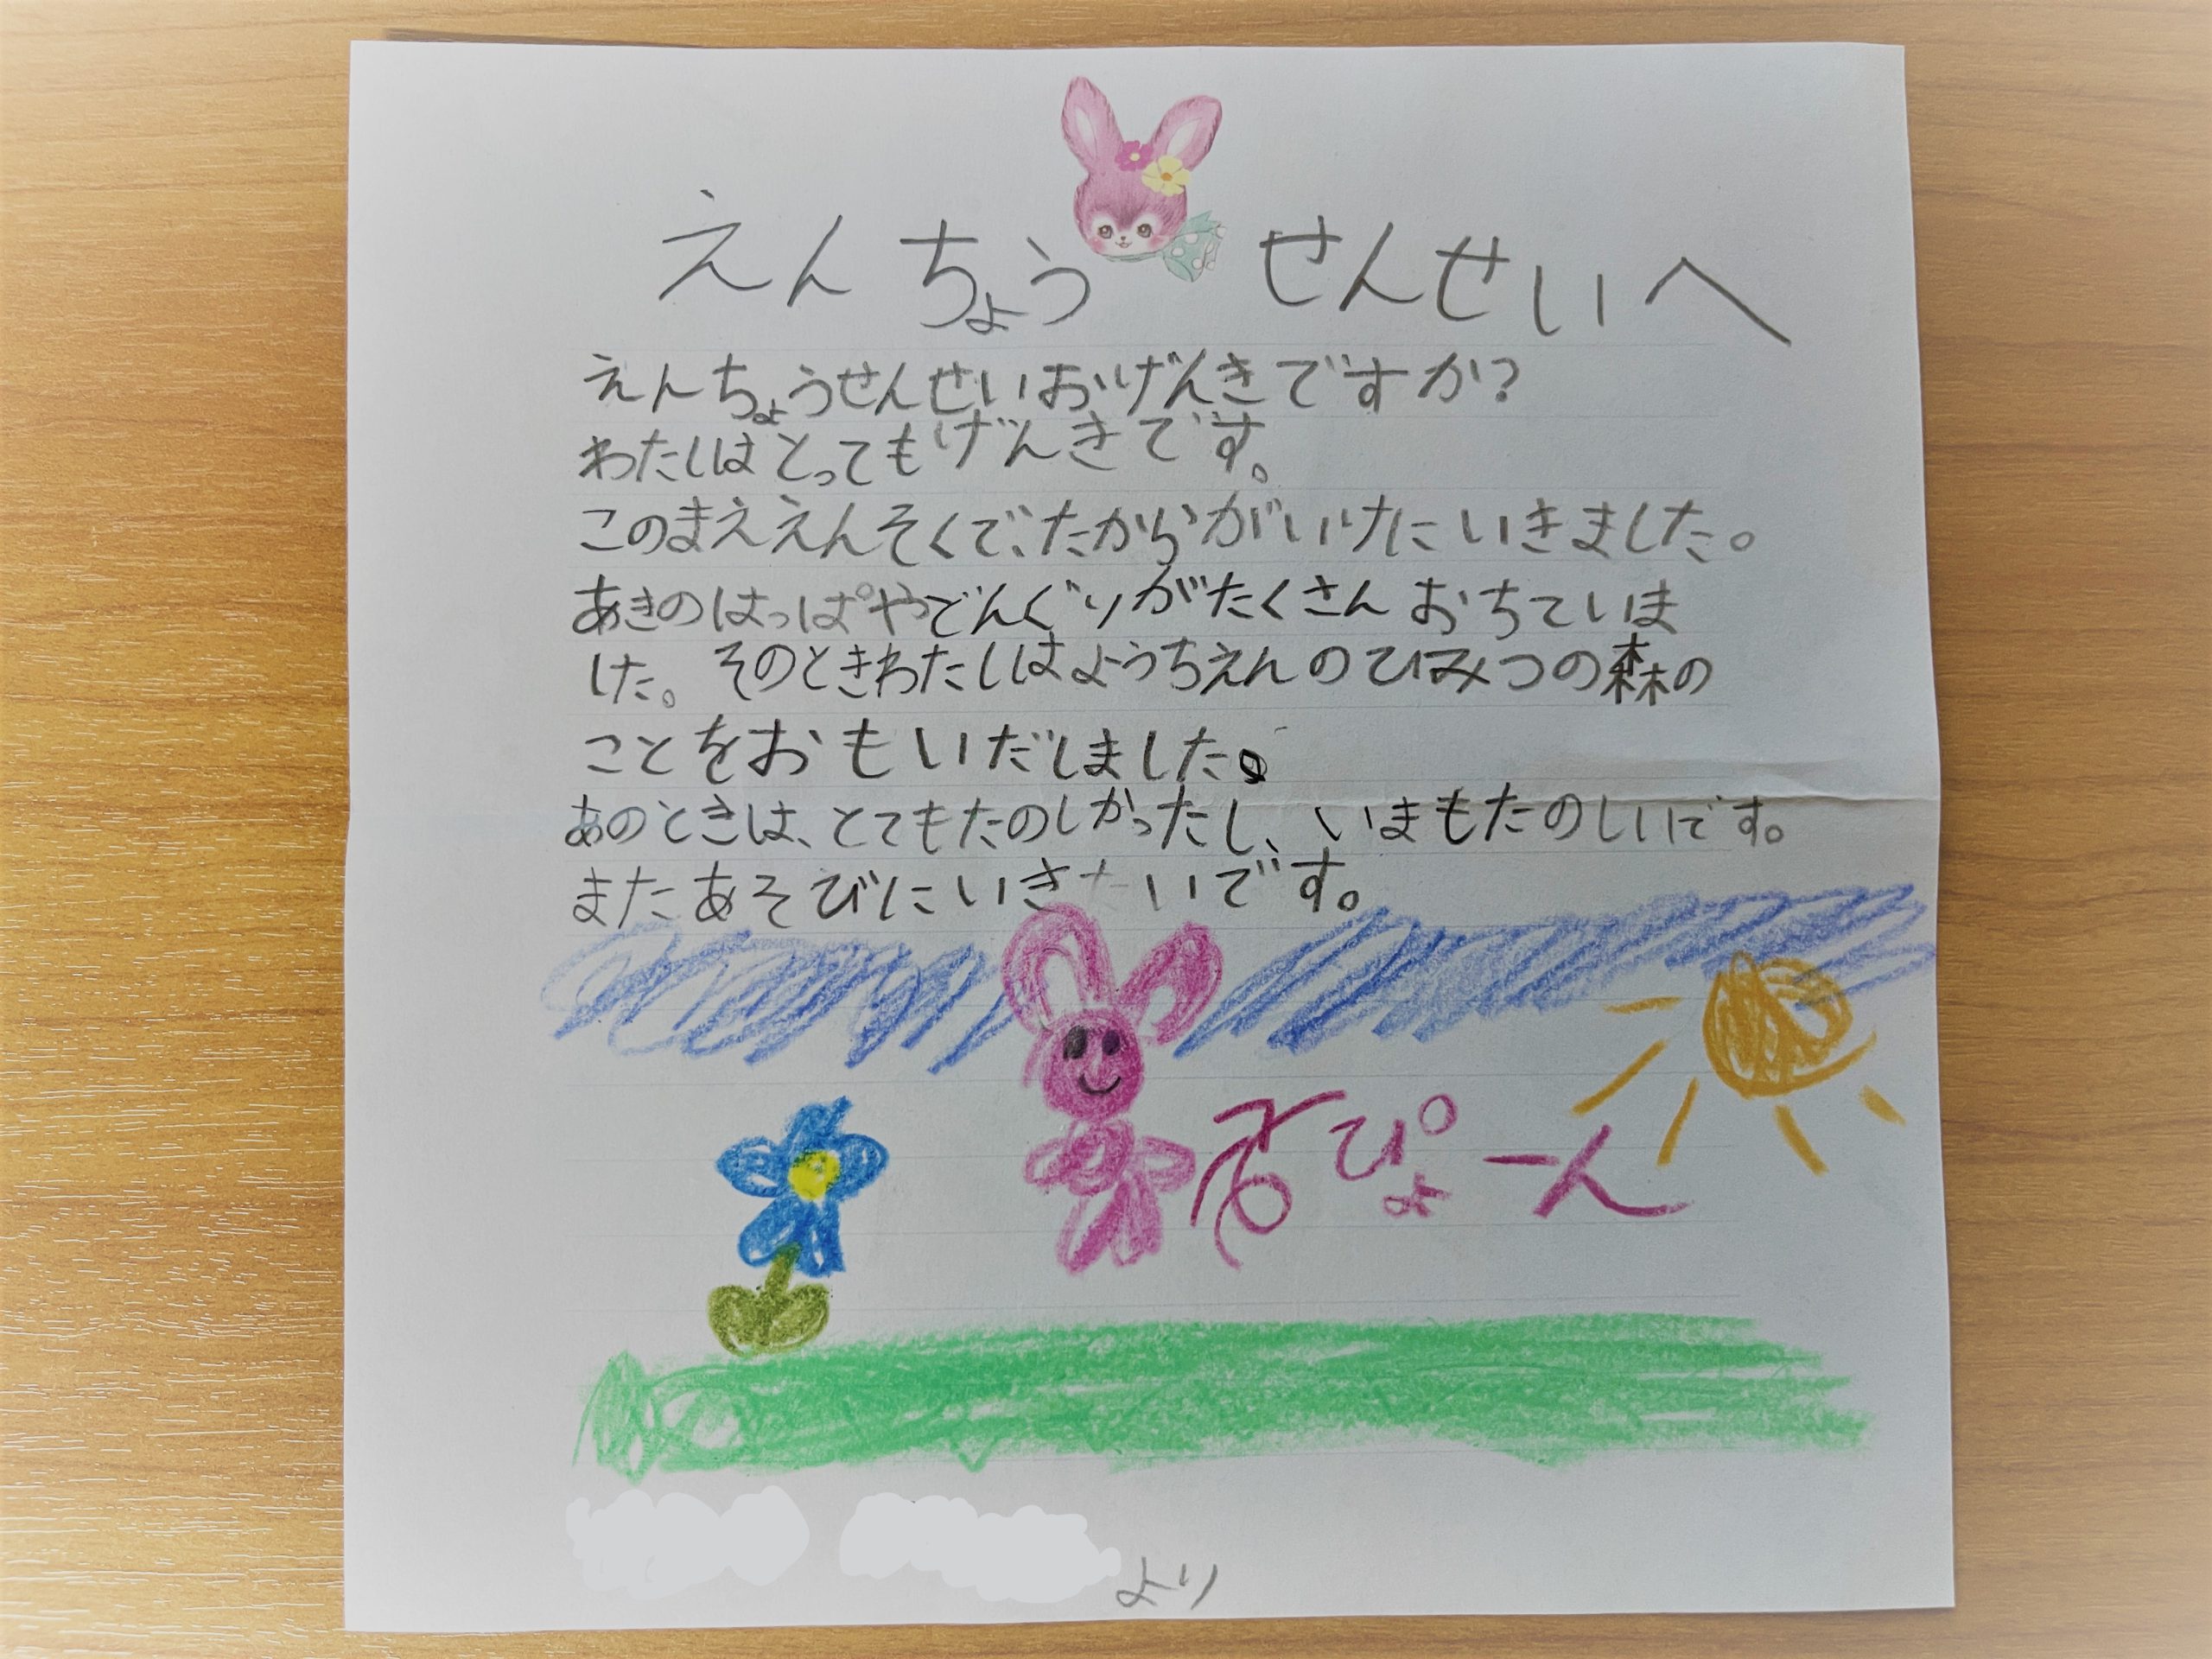 えんちょうせんせいへ
えんちょうせんせいおげんきですか?
わたしはとってもげんきです。
このまええんそくで、たからがいけにいきました。
あきのはっぱやどんぐりがたくさんおちていま
した。そのときわたしはようちえんのひみつの森の
ことをおもいだしました。
あのときは、とてもたのしかったし、いまもたのしいです。
またあそびにいきたいです。
ぴょーん
より